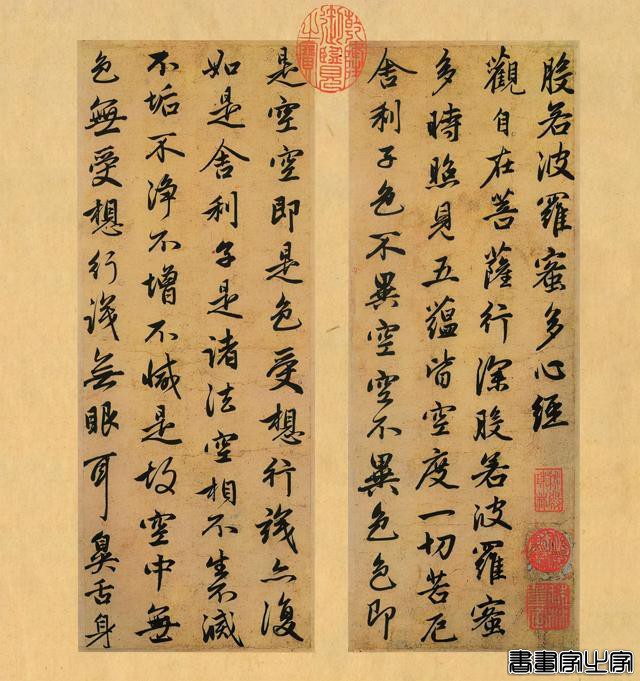 般若波羅蜜多心經
觀自在菩薩行深般若波羅蜜
多時照見五蘊皆空度一切苦厄
舍利子色不異空空不異色色即
是空空即是色受想行識亦復
如是舍利子是諸法空相不生不滅
不垢不淨不增不減是故空中無
色無受想行識無眼耳鼻舌身
乾隆御覽之寶
書畫家必字